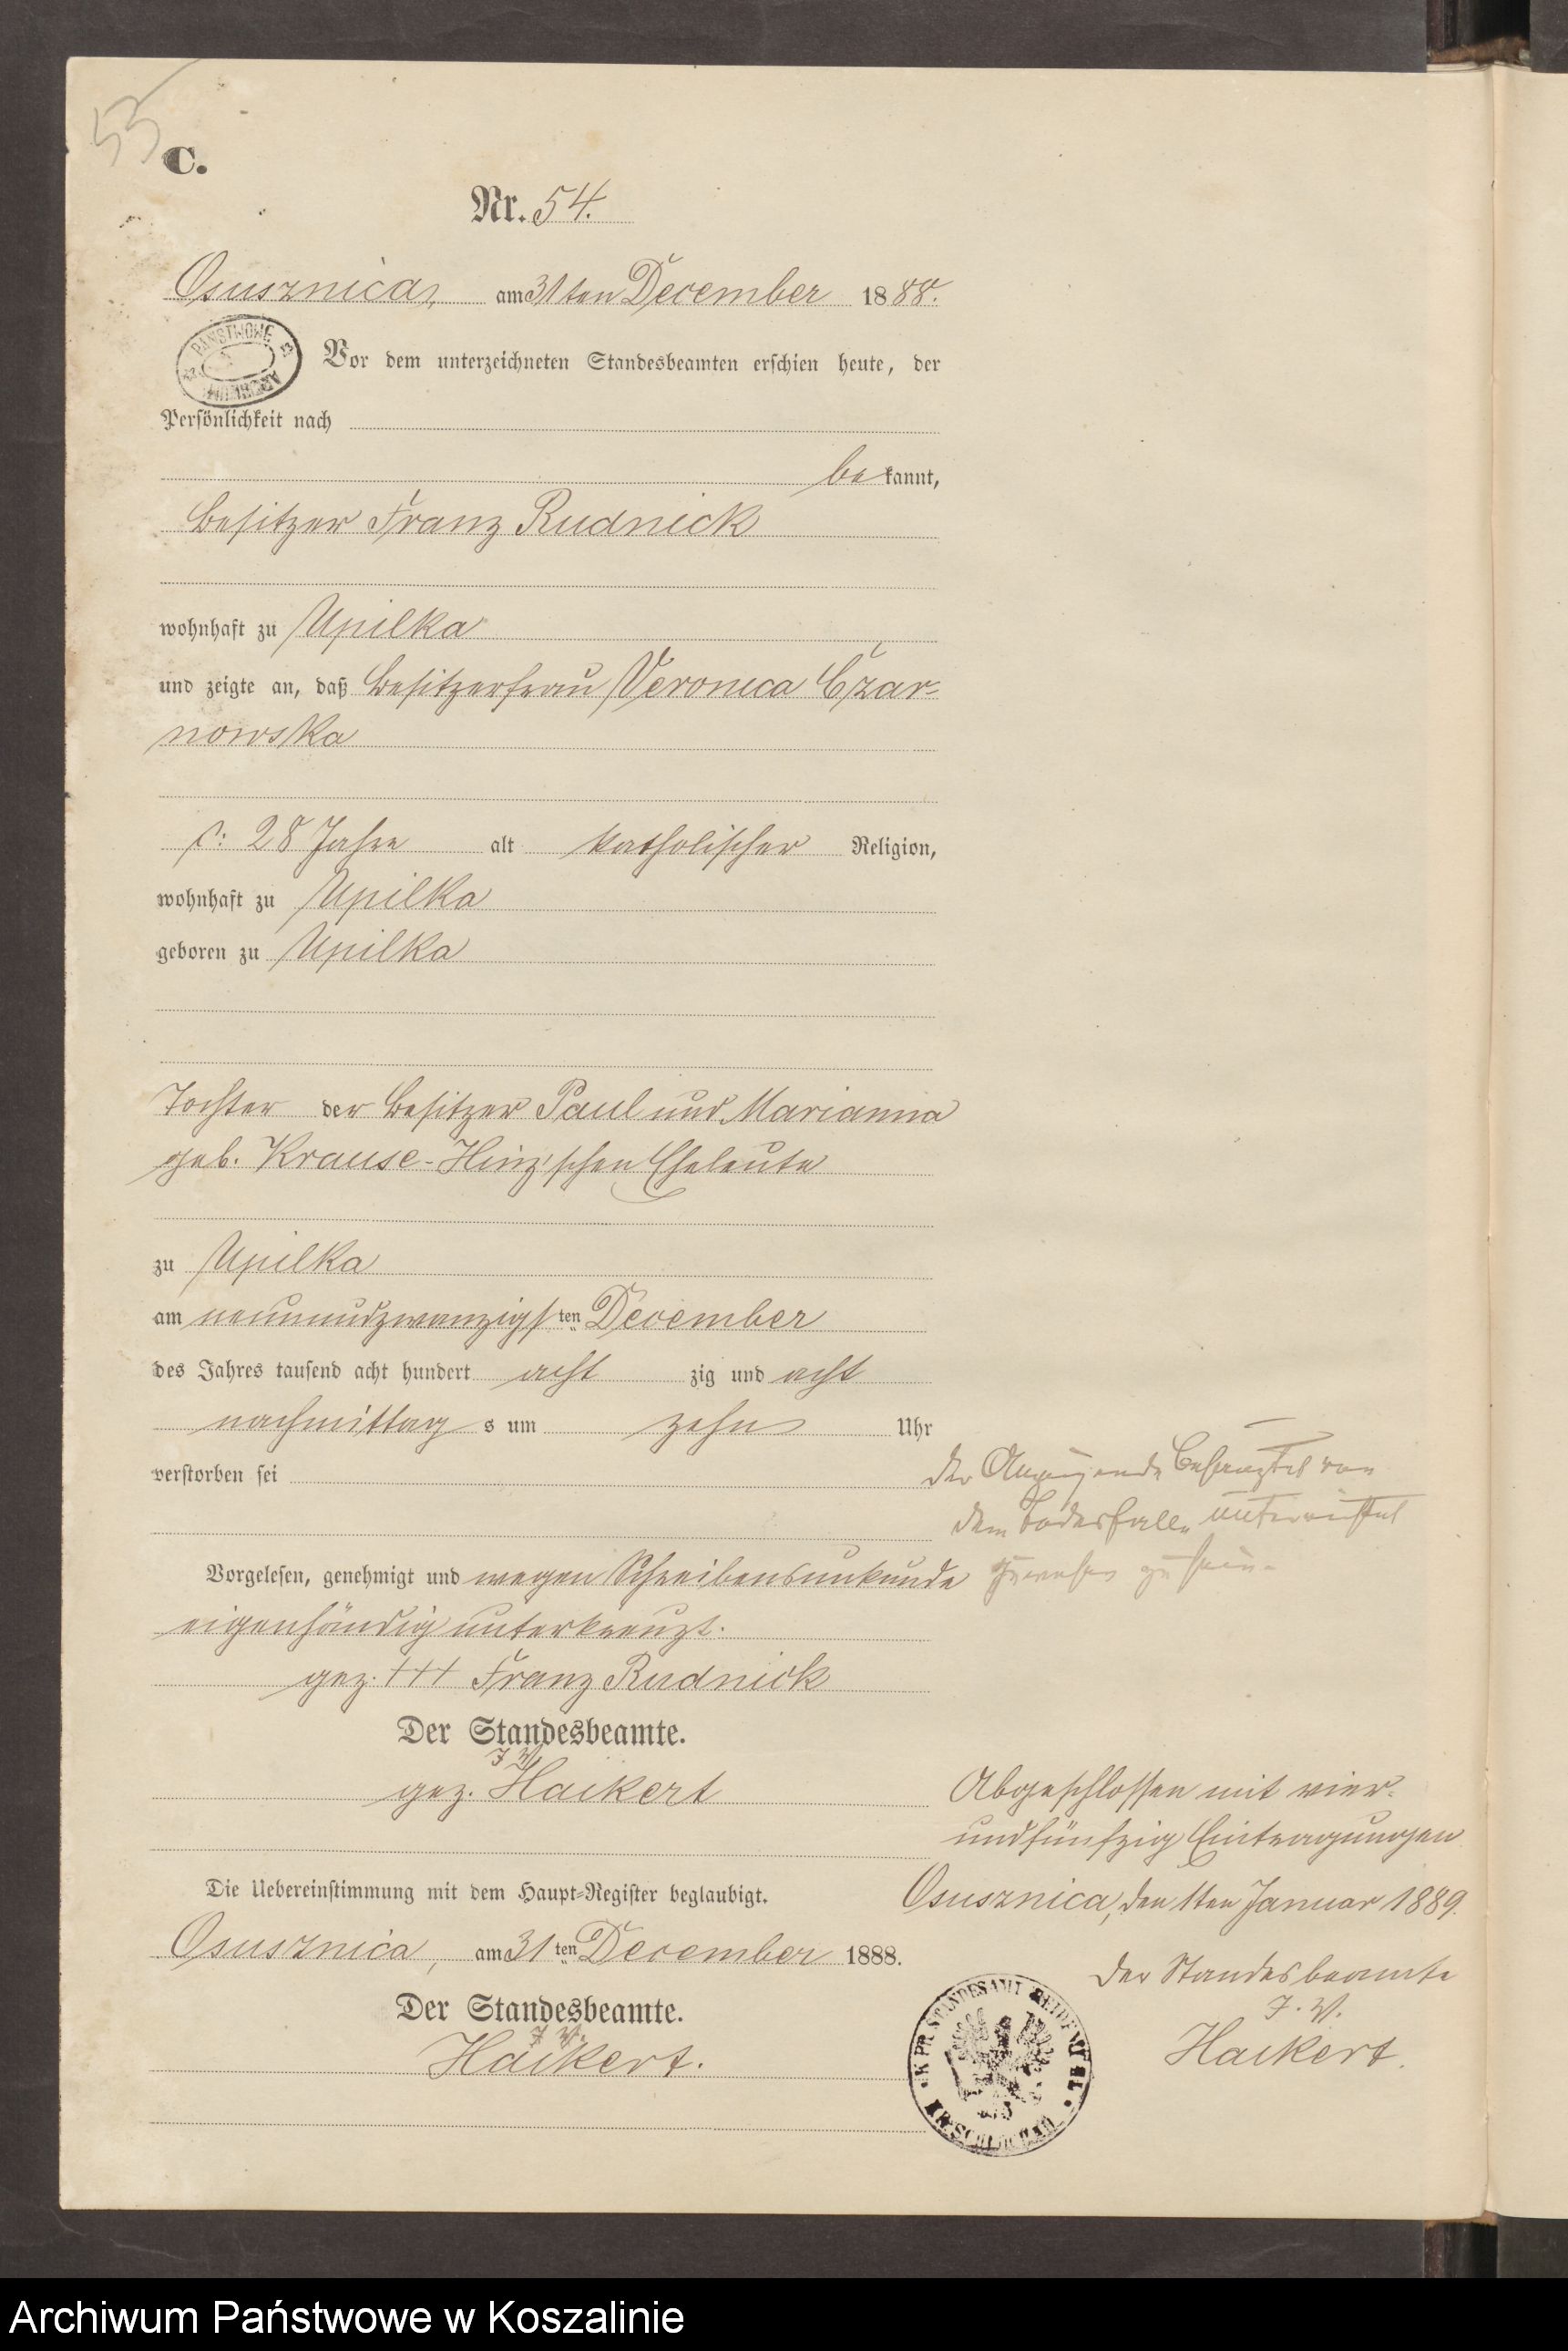 53
C.
Nr. 54.
Osusznica, am 31ten December 1888.
PAŃSTWOWE
Vor dem unterzeichneten Standesbeamten erschien heute, der
Persönlichkeit nach
bekannt,
Besitzer Franz Rudnick
wohnhaft zu Upilka
und zeigte an, daß Besitzerfrau Veronica Czar-
nowska
28 Jahre alt katholischer Religion,
wohnhaft zu Upilka
geboren zu Upilka
Tochter der Besitzer Paul und Marianna
geb. Krause-Hinz'schen Eheleute
zu Upilka
am neunundzwanzigsten December
des Jahres tausend acht hundert acht zig und acht
nachmittag s um zehn Uhr
verstorben sei
der Anzeigende behauptet von
dem Todesfalle unterrichtet
gewesen zu sein.
Vorgelesen, genehmigt und wegen Schreibensunkunde
eigenhändig unterkreuzt.
gez. +++ Franz Rudnick
Der Standesbeamte.
J. V.
gez. Haikert
Abgeschlossen mit vier-
undfünfzig Eintragungen
Die Uebereinstimmung mit dem Haupt-Register beglaubigt.
Osusznica, den 1ten Januar 1889.
Osusznica, am 31ten December 1888.
Der Standesbeamte
J. V.
Haikert.
Der Standesbeamte.
J. V.
Haikert.
K. PR. STANDESAMT
Archiwum Państwowe w Koszalinie